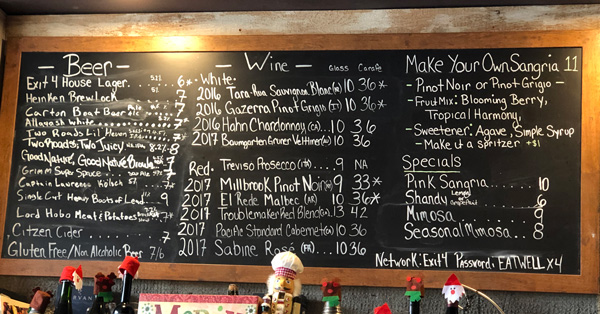 — Beer —
Exit 4 House Lager 5% 6*
Heineken Brewlock 7
Carton Boat Beer 7
Allagash White 7
Two Roads Lil Heaven 7
Two Roads: Two Juicy 8.2% 8
Good Nature, Good Nature Brewing 7
Grimm Super Spruce 7
Captain Lawrence Kölsch 7*
Single Cut Heavy Boots of Lead 9
Lord Hobo Meat & Potatoes 7
Citizen Cider 7*
Gluten Free/Non Alcoholic Beer 7/6
— Wine — Glass Carafe
White
2016 Tara-Hua Sauvignon Blanc 10 36*
2016 Gazerra Pinot Grigio (IT) 10 36*
2016 Hahn Chardonnay (CA) 10 36
2017 Baumgarten Gruner Veltliner 10 36
Treviso Prosecco (ITA) 9 NA
Red
2017 Millbrook Pinot Noir 9 33*
2017 El Rede Malbec (AR) 10 36*
2017 Troublemaker Red Blend 13 42
2017 Pacific Standard Cabernet 10 36
2017 Sabine Rosé (FR) 10 36
Make Your Own Sangria 11
- Pinot Noir or Pinot Grigio -
- Fruit Mix: Blooming Berry,
Tropical Harmony,
- Sweetener: Agave, Simple Syrup
- Make it a spritzer +$1
Specials
Pink Sangria 10
Shandy Lemon Grapefruit 6
Mimosa 9
Seasonal Mimosa 8
Network: Exit4 Password: EATWELLX4